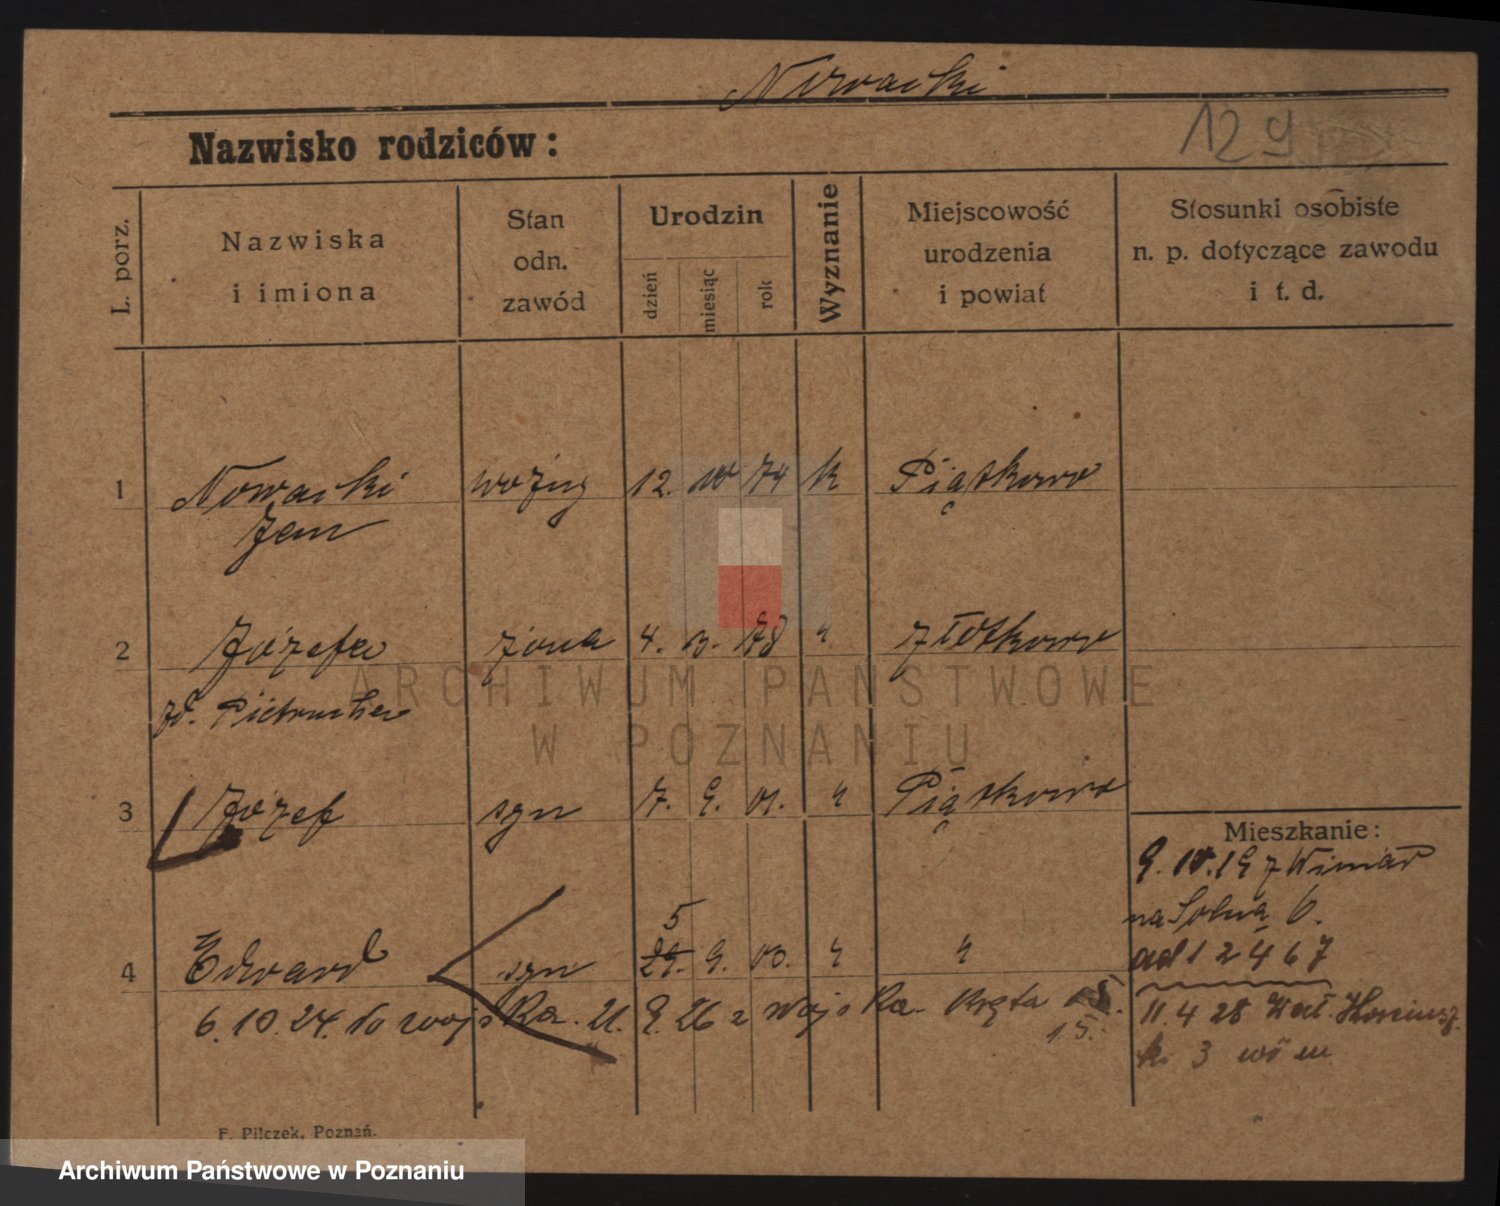 Nowacki
Nazwisko rodziców:
129
L. porz.
Nazwiska
i imiona
Stan
odn.
zawód
Urodzin
dzień
miesiąc
rok
Wyznanie
Miejscowość
urodzenia
i powiat
Stosunki osobiste
n. p. dotyczące zawodu
i t. d.
1 Nowacki woźny 12. 10 74 k Piątkowo
Jan
2 Józefa żona 4. 3. 78 " Złotkowo
zd. Pietrucha
3 Józef syn 7. 9. 01. " Piątkowo
5
4 Edward syn 29. 9. 00. " "
6.10.24. do wojska. 21. 9. 26 z wojska. Kręta
15.
Mieszkanie:
9. 10. 19 z Winiar
na Solną 6.
ad 12467
11. 4 28 Wał.
k. 3
F. Pilczek, Poznań.
ARCHIWUM PAŃSTWOWE
W POZNANIU
Archiwum Państwowe w Poznaniu